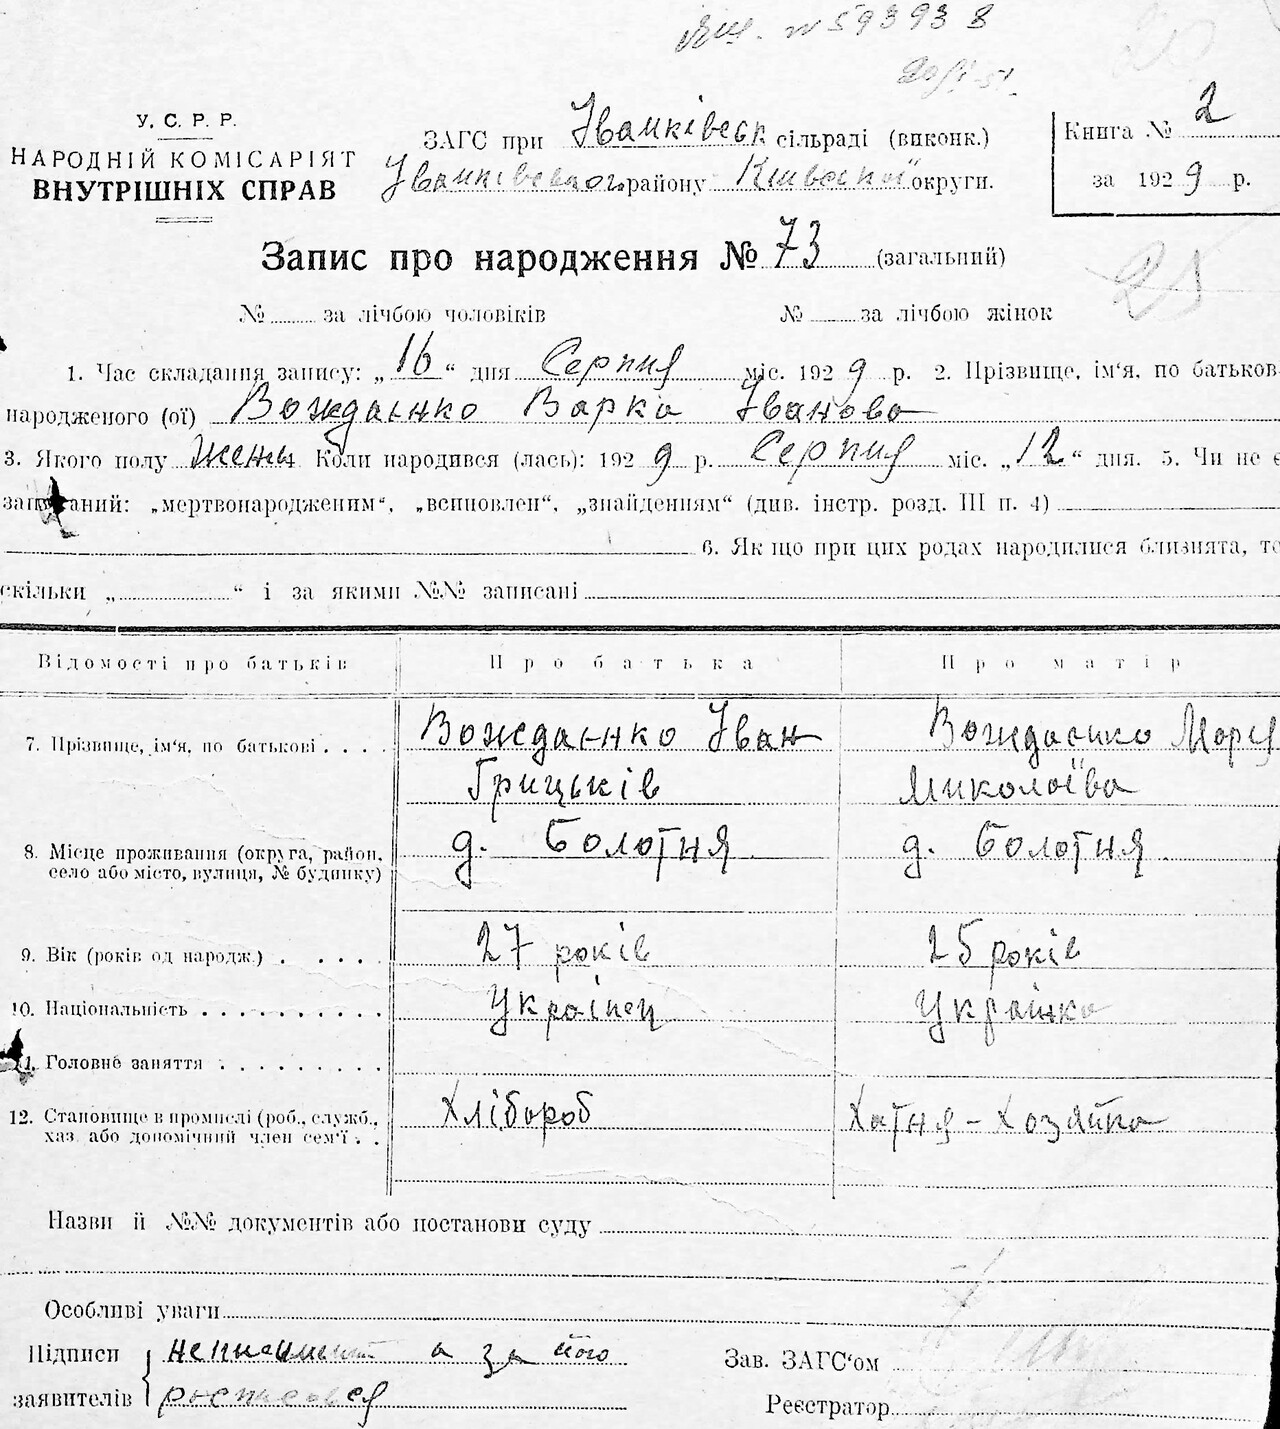 № 593938
У. С. Р. Р.
НАРОДНІЙ КОМІСАРІЯТ
ВНУТРІШНІХ СПРАВ
ЗАГС при Іванківеск сільраді (виконк.)
Іванківського району Київської округи.
Книга № 2
за 1929 р.
Запис про народження № 73 (загальний)
25
№ за лічбою чоловіків № за лічбою жінок
1. Час складання запису: „16“ дня Серпня міс. 1929 р. 2. Прізвище, ім'я, по батькові
народженого (ої) Вождаєнко Варка Іванова
3. Якого полу жен. Коли народився (лась): 1929 р. Серпня міс. „12“ дня. 5. Чи не є
записаний: „мертвонародженим“, „всиновлен“, „знайденням“ (див. інстр. розд. III п. 4)
6. Як що при цих родах народилися близнята, то
скільки „ “ і за якими №№ записані
Відомості про батьків Про батька Про матір
7. Прізвище, ім'я, по батькові . . . . Вождаєнко Іван Вождаєнко Марія
Грицьків Миколаїва
8. Місце проживання (округа, район, д. Болотня д. Болотня
село або місто, вулиця, № будинку)
9. Вік (років од народж.) . . . . . 27 років 25 років
10. Національність . . . . . . . . . . Українец Українка
11. Головне заняття . . . . . . . . .
12. Становище в промислі (роб., служб., Хлібороб Хатня - Хозяйка
хаз. або допомічний член сем'ї . .
Назви й №№ документів або постанови суду
Особливі уваги
Підписи неписьмен а за його
заявителів росписався
Зав. ЗАГС'ом
Реєстратор